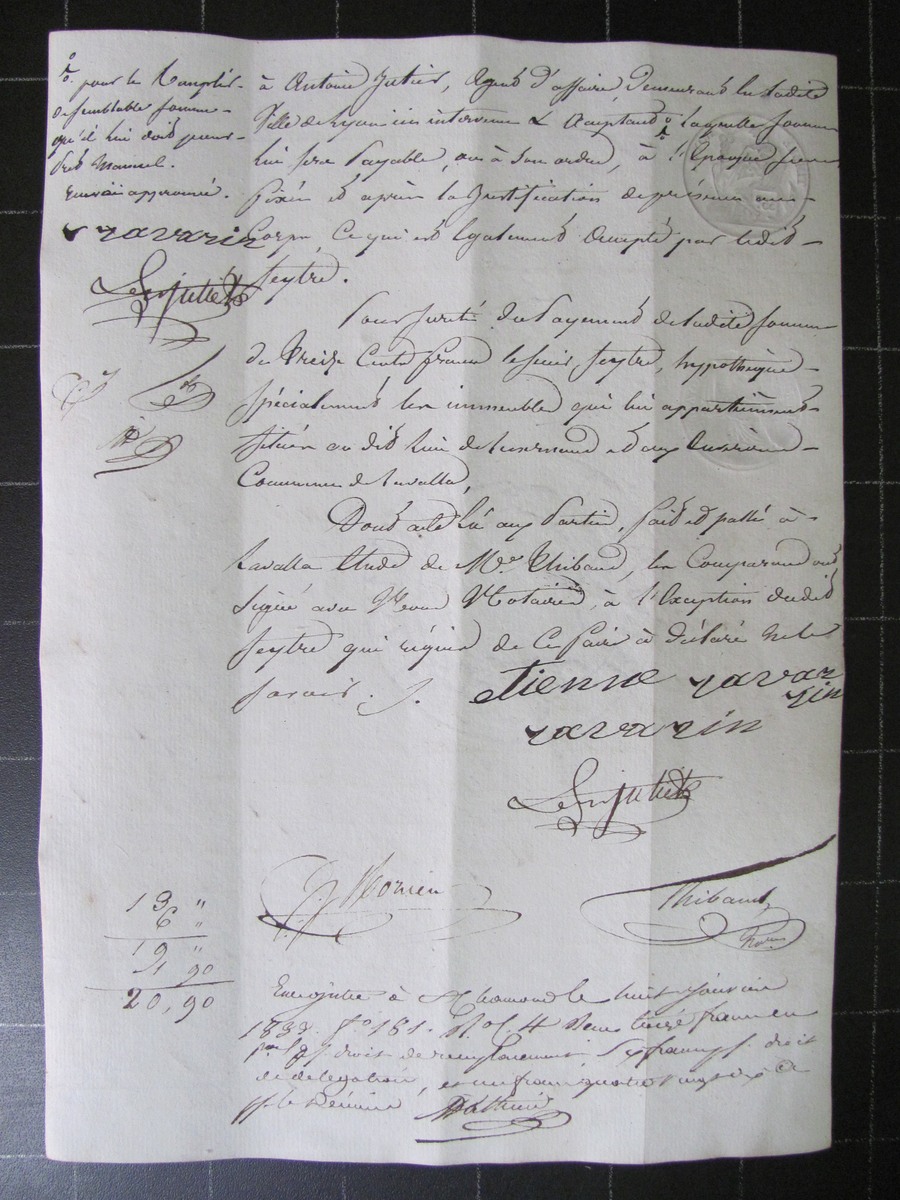 pour le Remplir
de semblable somme
qu'il lui doit pour
Pret Manuel.
renvoi approuvé.
ravarin
à Antoine Jutier, Agent d'affaire Demeurant en ladite
Ville de Lyon ici intervenu & Acceptant, laquelle somme
lui sera Payable, ou à son ordre, à l'Epoque sus
fixée et après la Justification de présence au
Corps, Ce qui est Egalement accepté par ledit
Seytre.
Pour sureté du Payement de ladite somme
de Treize Cents francs le sieur Seytre, hypothèque
Spécialement les immeubles qui lui appartiennent
situés au dit lieu de et aux
Commune de Lavalla,
Dont acte Lu aux Parties, fait et passé à
Lavalla Etude de Me. Thibaud, les Comparants ont
signé avec Nous Notaires, à l'Exception dudit
Seytre qui réquis de Ce faire à déclaré ne le
savoir.
etienne ravar
rin
ravarin
Thibaud
13 "
6 "
19 "
1 90
20,90
Enregistré à St Chamond le huit Janvier
1833. fo 181. Ro. C. 4 Reçu treize francs
pour droit de remplacement, six francs pr. droit
de délégation, et un franc quatre vingt dix c
pr. le Décime